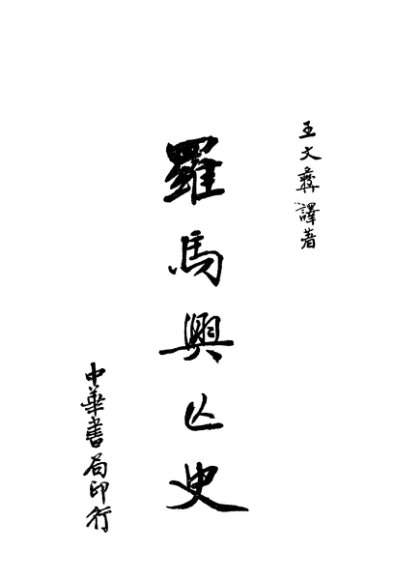 王文彝譯著
羅馬興亡史
中華書局印行